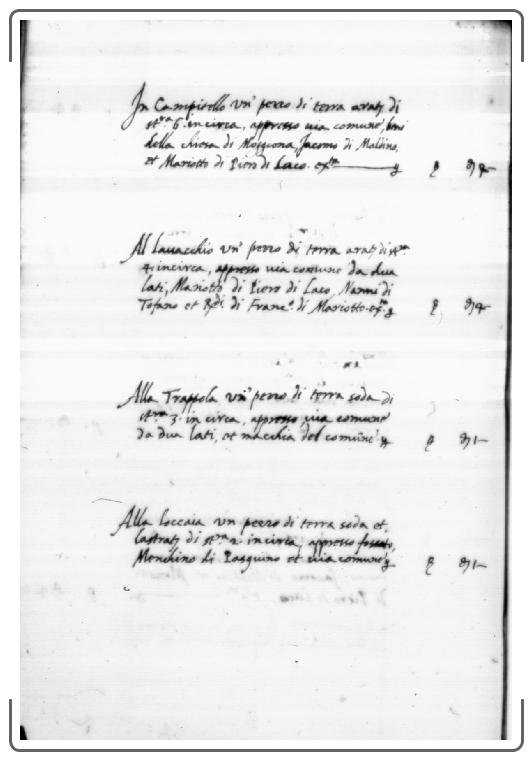 In Campitello un' pezzo di terra arat.
di st.ra 6. incirca, appresso uia comune, beni
della chiesa di Moggiona, Jacomo di Maldino,
et Mariotto di Piero di Laco.
Al Lauacchio un' pezzo di terra arat. di st.ra
4. incirca, appresso uia comune da dua
lati, Mariotto di Piero di Laco, Nanni di
Tofano et di Franc.o di Mariotto.
Alla Trappola un' pezzo di terra soda di
st.ra 3. in circa, appresso uia comune
da dua lati, et macchia del comune
Alla un pezzo di terra soda et
di st.ra 2. incirca, appresso fossato,
Menchino di Pasquino et uia comune